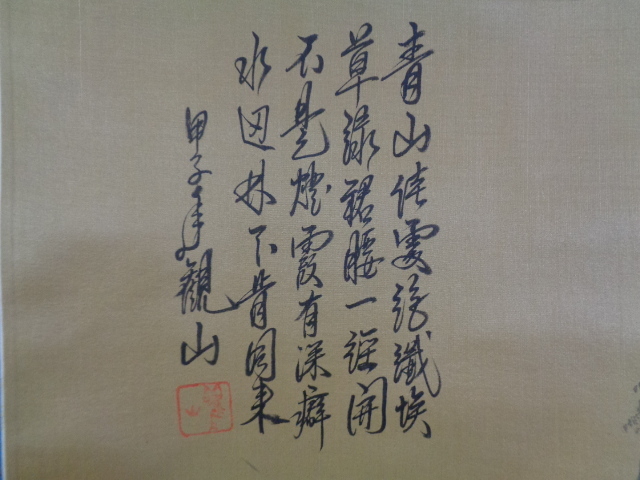 青山佳處絕纖埃
草綠裙腰一逕開
不是煙霞有深癖
水邊林下肯同來
甲子年觀山